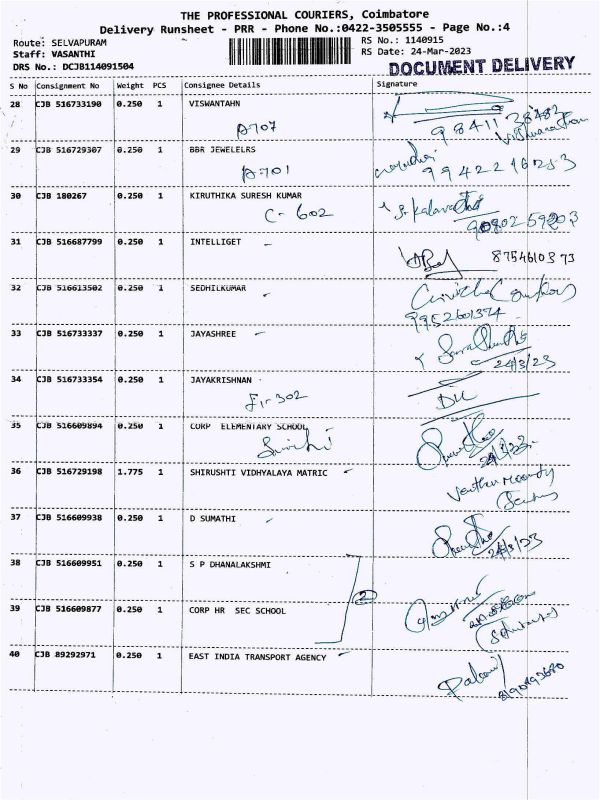 THE PROFESSIONAL COURIERS, Coimbatore
Delivery Runsheet - PRR - Phone No.:0422-3505555 - Page No.:4
Route: SELVAPURAM
Staff: VASANTHI
DRS No.: DCJB114091504
RS No.: 1140915
RS Date: 24-Mar-2023
DOCUMENT DELIVERY
S No Consignment No Weight PCS Consignee Details Signature
28 CJB 516733190 0.250 1 VISWANTAHN
A-707
98411 38483
29 CJB 516729307 0.250 1 BBR JEWELELRS
A-701
30 CJB 180267 0.250 1 KIRUTHIKA SURESH KUMAR
C-602
S. Kalavathi
31 CJB 516687799 0.250 1 INTELLIGET
8754610373
32 CJB 516613502 0.250 1 SEDHILKUMAR
9952601374
33 CJB 516733337 0.250 1 JAYASHREE
24/3/23
34 CJB 516733354 0.250 1 JAYAKRISHNAN
F1-302
35 CJB 516609894 0.250 1 CORP ELEMENTARY SCHOOL
24/3/23
36 CJB 516729198 1.775 1 SHIRUSHTI VIDHYALAYA MATRIC
37 CJB 516609938 0.250 1 D SUMATHI
24/3/23
38 CJB 516609951 0.250 1 S P DHANALAKSHMI
2
39 CJB 516609877 0.250 1 CORP HR SEC SCHOOL
40 CJB 89292971 0.250 1 EAST INDIA TRANSPORT AGENCY